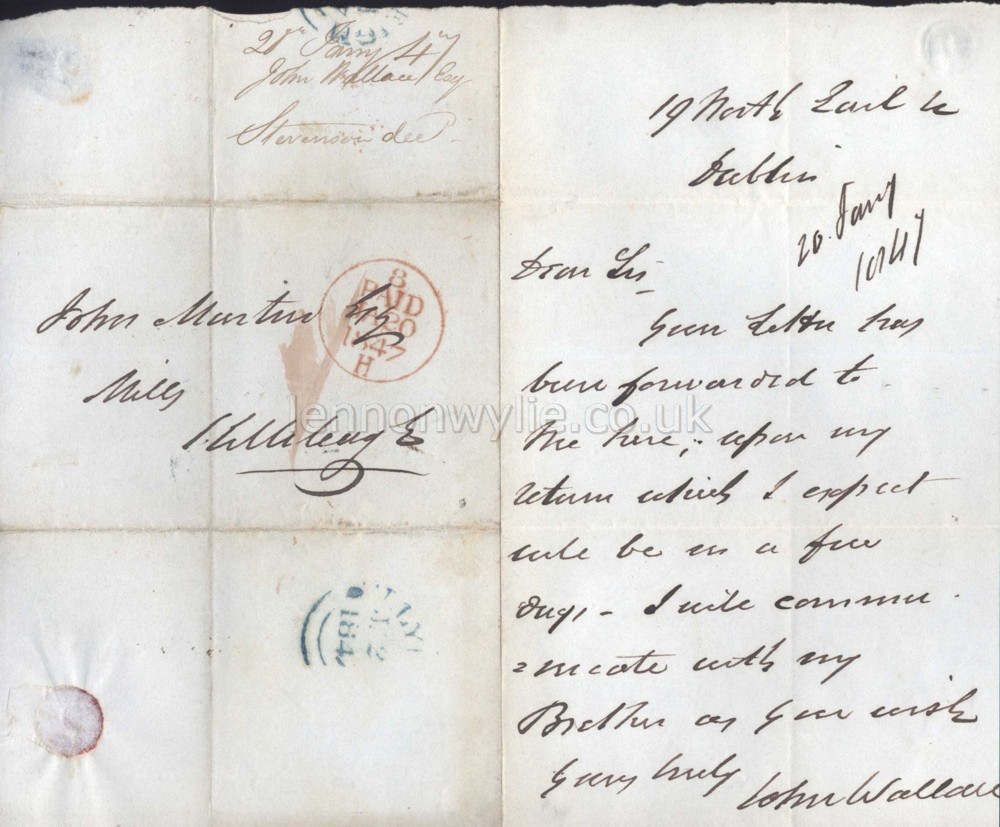 21st Jany 47
John Wallace Esq
Stevenson deed
John Martin Esq
Mills
Killileagh
8
PAID
20
1847
H
LLY
184
19 North Earl St
Dublin
20 Jany
1847
Dear Sir
Your Letter has
been forwarded to
me here; upon my
return which I expect
will be in a few
days - I will commu-
=nicate with my
Brother as you wish
Yours truly
John Wallace
lennonwylie.co.uk